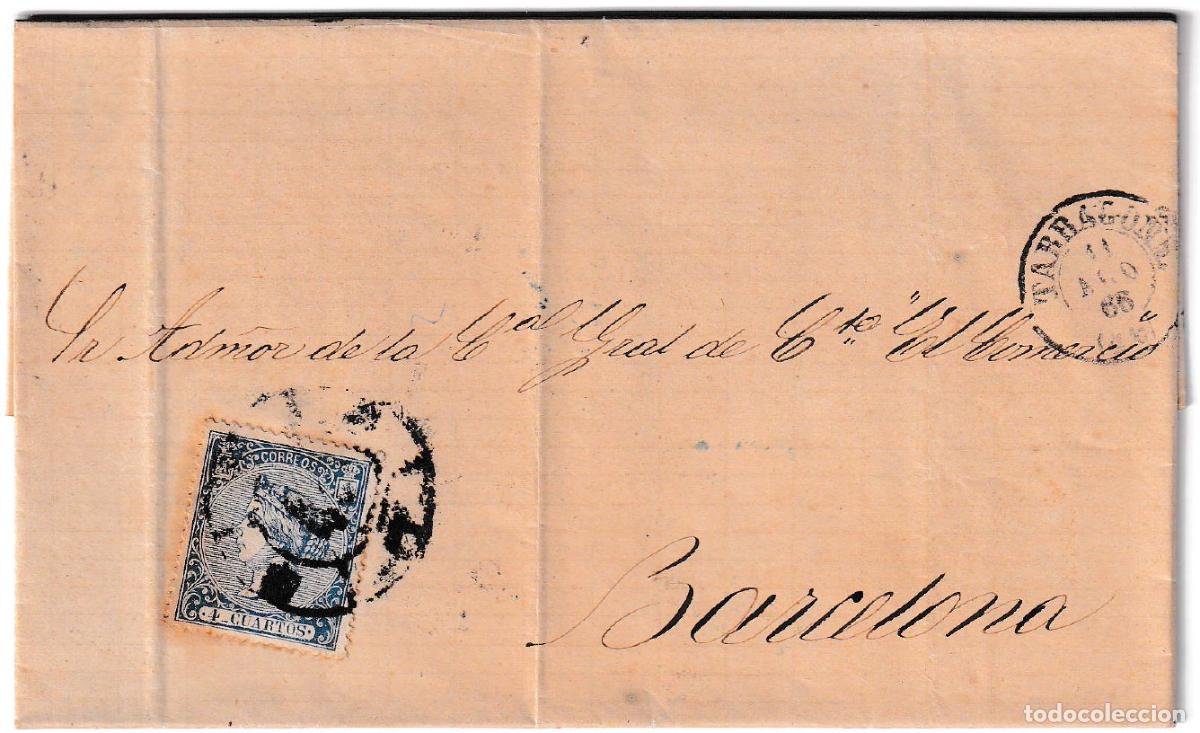 TARRAGONA
11
AGO
66
Sr Admōr de la Cª Gral de Cto "El Comercio"
CORREOS
4 CUARTOS
Barcelona
todocoleccion